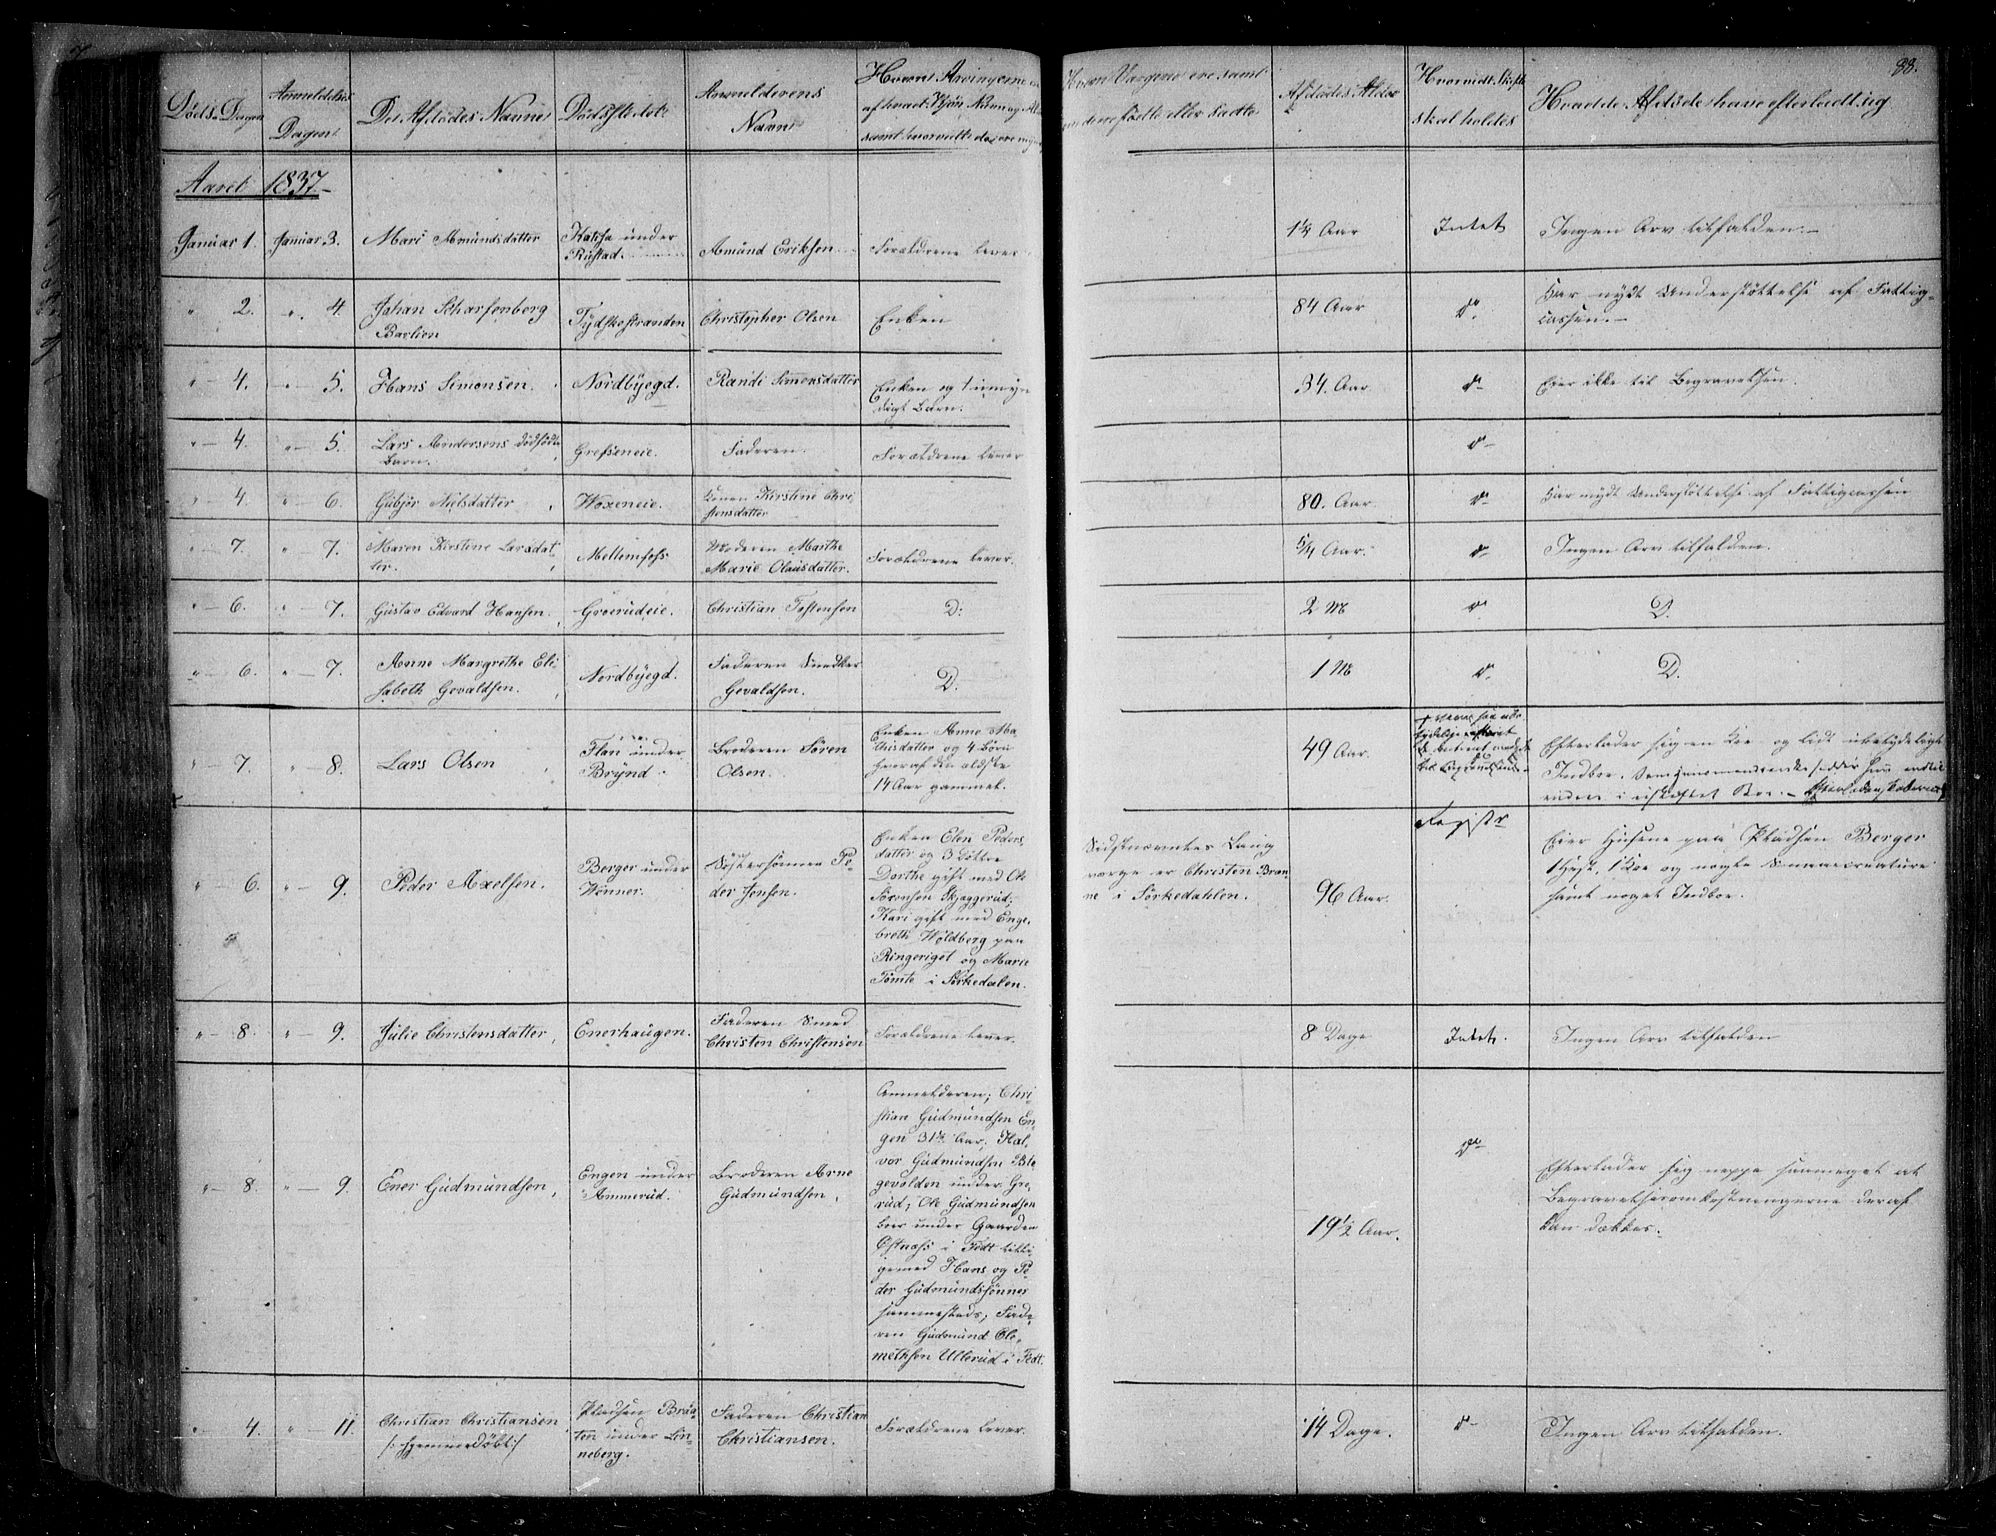 88.
Døds-Dagen
Anmeldelses
Dagen
Den Afdødes Navne
Dødsstedet
Anmelderens
Navn
Hvem Arvingerne er
af hvad Kjøn Navn og Alder
samt hvorvidt de ere myndige
Hvem Værgerne ere samt
om de ere fødte eller satte
Afdødes Alder
Hvorvidt Skifte
skal holdes
Hvad de Afdøde have efterladt sig
Aaret 1837
Januar 1. Januar 3. Mari Amundsdatter
Kassa under
Rustad.
Amund Eriksen
Forældrene lever
1 1/4 Aar
Intet
Ingen Arv tilfalden.
" 2. " 4.
Johan Scharfenberg
Baclien
Tydskestranden
Christopher Olsen
Enken
84 Aar
do
Har nydt Understøttelse af Fattig-
cassen.
" 4. " 5. Hans Simonsen.
Nordbyegd.
Randi Simensdatter
Enken og 1 umyn
digt Barn.
34. Aar
do
Eier ikke til Begravelsen.
" 4. " 5.
Lars Andersens dødfødte
Barn.
Grefseneie.
Faderen.
Forældrene lever
do
" 4. " 6. Gubjør Nielsdatter
Woxeneie.
Konen Kirstine Chri
stensdatter
80. Aar
do
Har nydt Understøttelse af Fattigcassen
" 7. " 7.
Maren Kirstine Larsdat
ter.
Mellemfoss
Moderen Marthe
Marie Olausdatter.
Forældrene lever.
5/4 Aar.
do
Ingen Arv tilfalden.
" 6. " 7. Gustav Edvard Hansen.
Groerudeie.
Christian Tostensen
D:
2 M
do
D.
" 6. " 7.
Anne Margrethe Eli
sabeth Gevaldsen.
Nordbyegd.
Faderen Snedker
Gevaldsen.
D.
1 M
do
D.
" 7. " 8. Lars Olsen
Flan under
Brynd
Broderen Søren
Olsen.
Enken Anne Ma
thisdatter og 4 Børn
hvoraf den ældste
14 Aar gammel.
49 Aar.
Efterlader sig en Koe og lidt ubetydeligt
Indboe.
i uskiftet Boe.
" 6. " 9. Peder Axelsen.
Berger under
Wønner.
Søstersønnen Pe
der Jensen.
Enken Elen Peders
datter og 3 Døttre
Dorthe gift med Ole
Sørensen Skjaggerud;
Kari gift med Enge
breth Woldberg paa
Ringeriget og Marie
Tomte i Sørkedalen.
Sidstnævntes Laug
værge er Christen Bran
ne i Sørkedahlen.
96 Aar.
Registr
Eier Husene paa Pladsen Berger
1 Hest, 1 Koe og nogle Smaacreature
samt noget Indboe.
" 8. " 9. Julie Christensdatter,
Enerhaugen.
Faderen Smed
Christen Christensen
Forældrene lever.
8 Dage
Intet.
Ingen Arv tilfalden
" 8. " 9. Ener Gudmundsen,
Engen under
Ammerud.
Broderen Arne
Gudmundsen,
Anmelderen; Chri-
stian Gudmundsen En-
gen 31 1/2 Aar. Hal-
vor Gudmundsen Ble
gevolden under Gro-
rud; Ole Gudmundsen
boer under Gaarden
Østnæss i Fedt
med Hans og Pe
der Gudmundssønner
sammesteds; Fade-
ren Gudmund Cle-
methsen Ullerud i Fedt.
19 1/2 Aar.
do
Efterlader sig neppe saameget at
Begravelsesomkostningerne deraf
kan dækkes.
" 4. " 11.
Christian Christiansen
/: hjemmedøbt:/
Pladsen Braa-
ten under Lin-
neberg.
Faderen Christian
Christiansen.
Forældrene lever.
14 Dage.
do
Ingen Arv tilfalden.